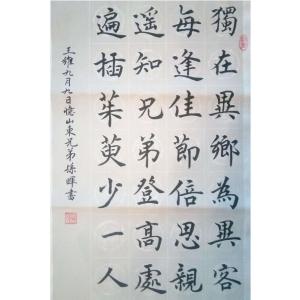 獨在異鄉為異客
每逢佳節倍思親
遥知兄弟登高處
遍插茱萸少一人
王維九月九日憶山東兄弟 孫暉書